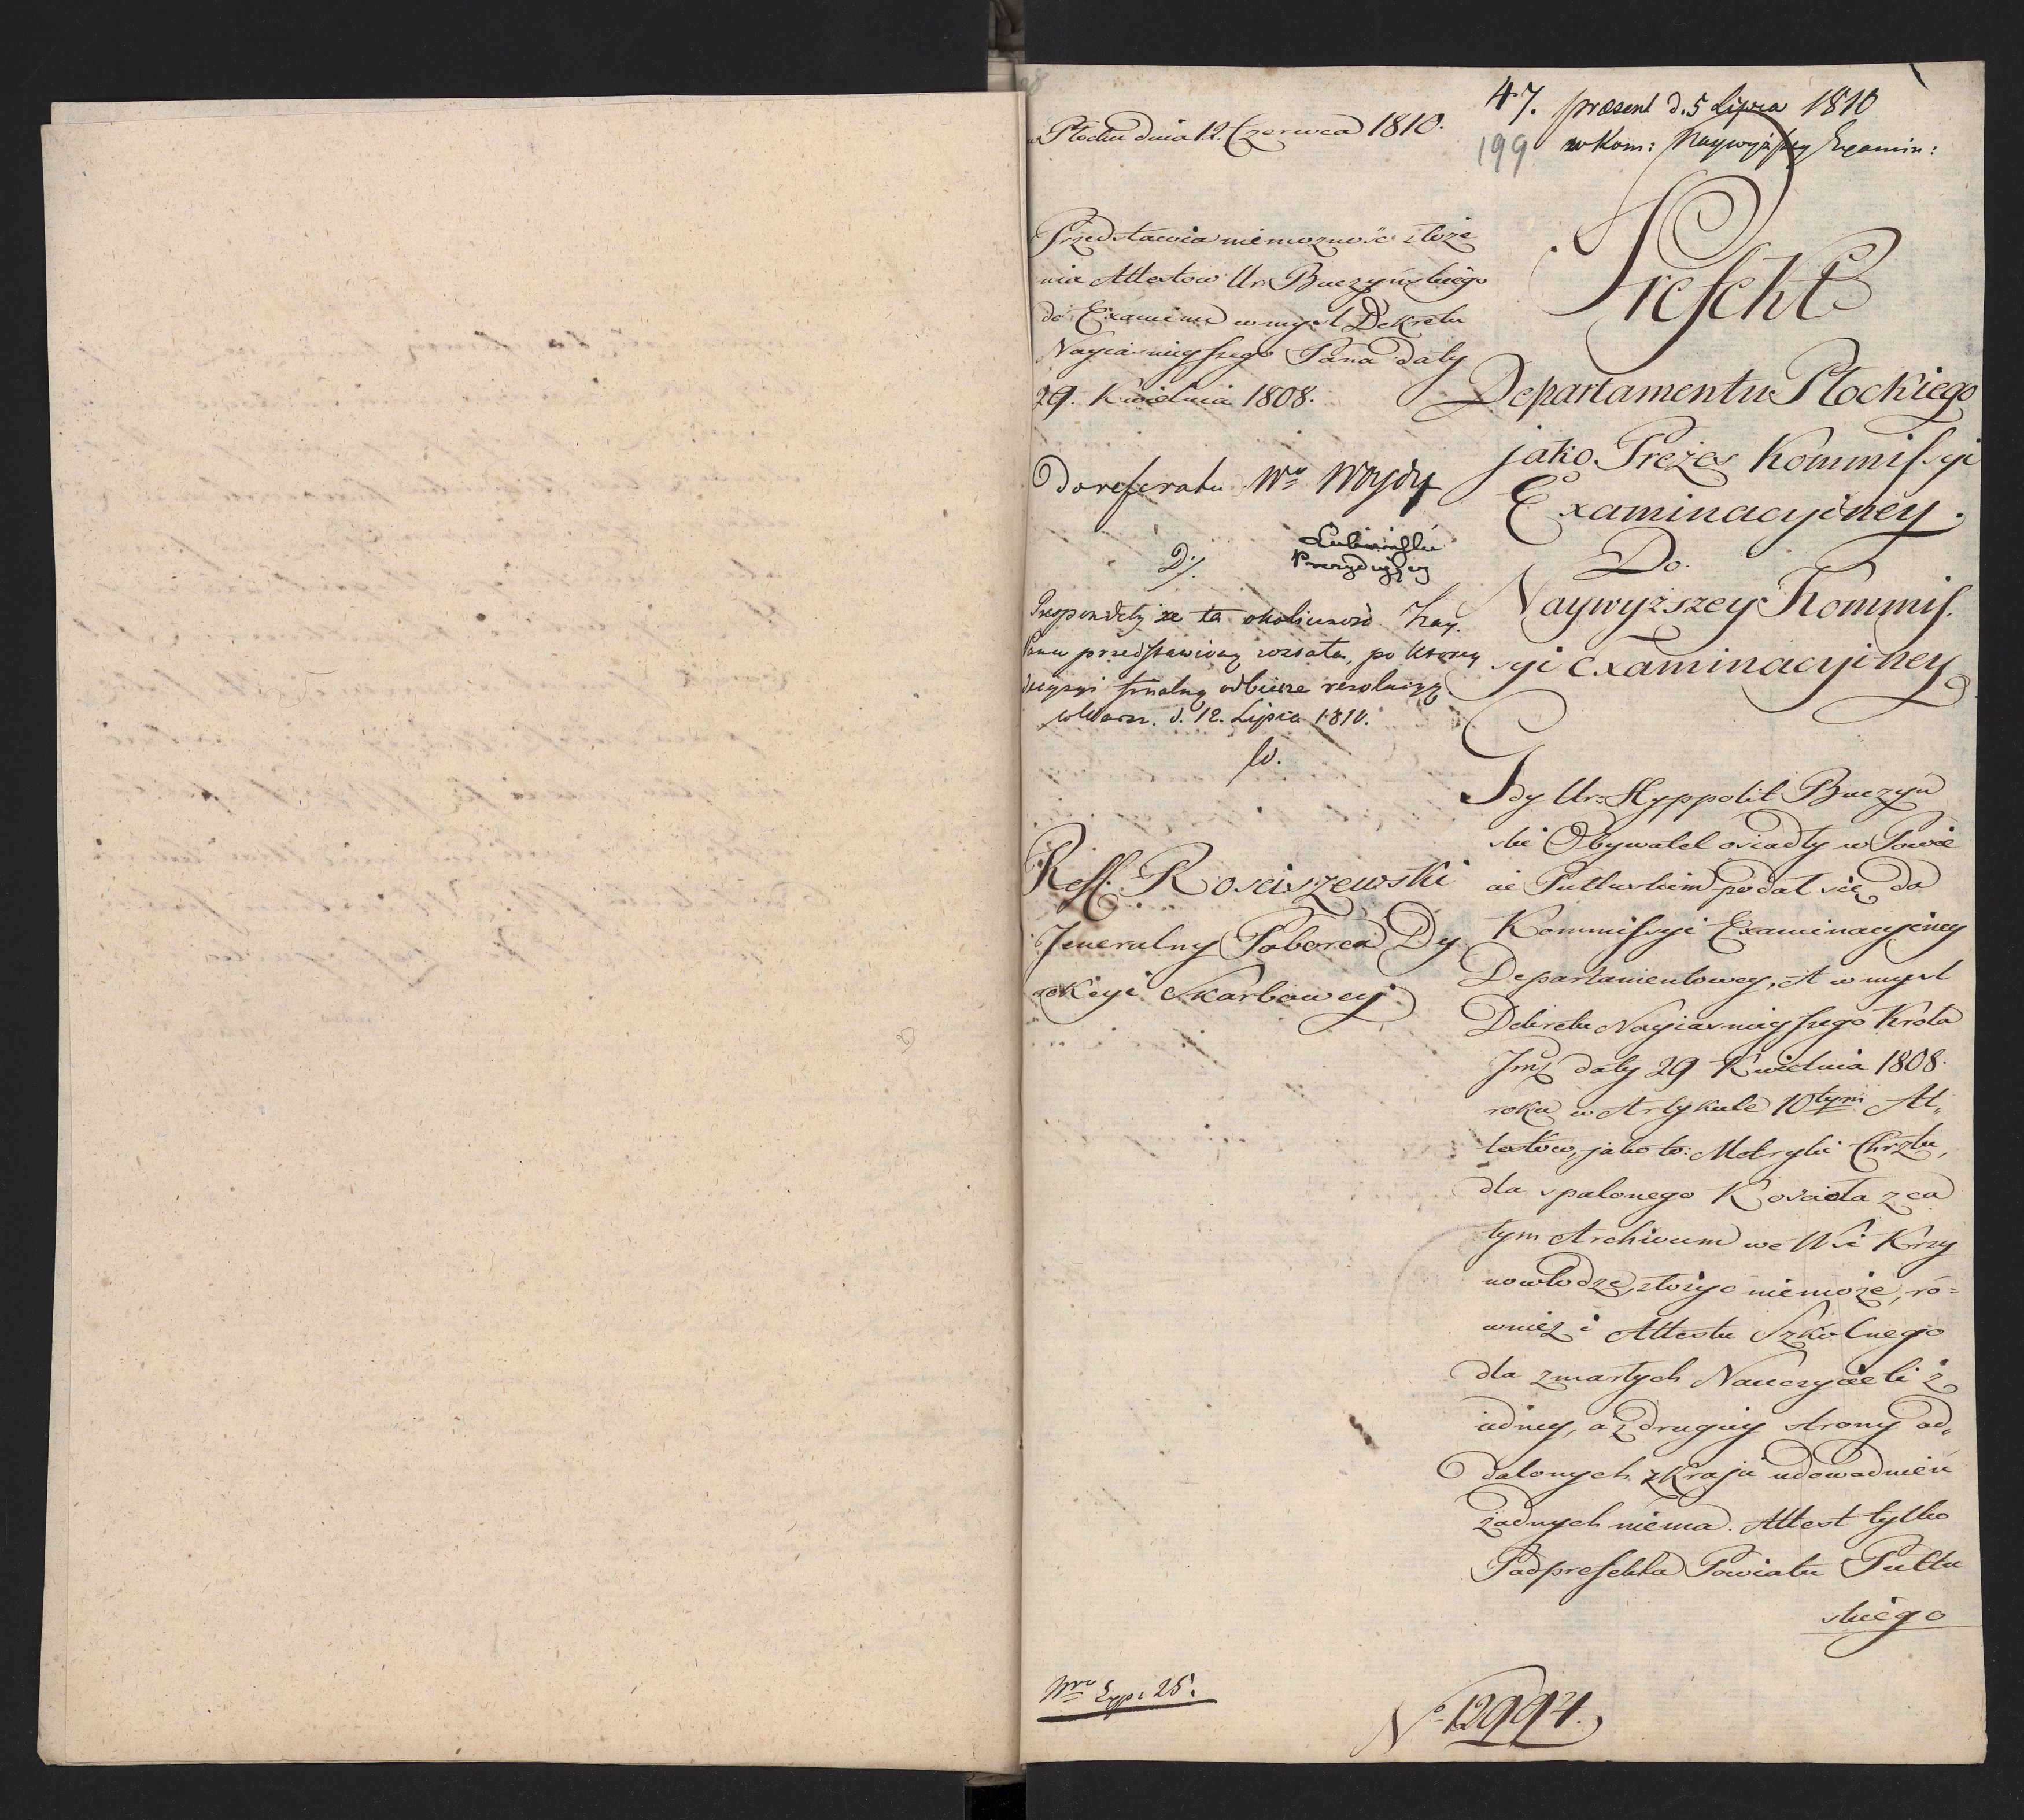 w Płocku dnia 12. Czerwca 1810.
47. præsent d. 5 Lipca 1810
199 w Kom: Naywyższey Examin:
Przedstawia niemozność złoże
nia Attestow Ur. Buczyńskiego
do Examenu w mysl Dekretu
Nayiasnieyszego Pana daty
29. Kwietnia 1808.
Do referatu Wo Woydy
Lubieński
Prezydujący
D.
że ta okoliczność Nay.
Panu przedstawioną została, po ktorey
decyzyi finalną odbierze rezolucyą
w Warsz. d. 12. Lipca 1810.
W.
Reff. Rosciszewski
Jeneralny Poborca Dy
rekcyi Skarbowey
Nro Exp: 25.
Prefekt
Departamentu Płockiego
jako Prezes Kommissyi
Examinacyiney.
Do
Naywyższey Kommis-
syi Examinacyiney
Gdy Ur: Hyppolit Buczyń
ski Obywatel osiadły w Powie
cie Pułtuskim podał się do
Kommissyi Examinacyiney
Departamentowey, A w mysl
Dekretu Nayiasnieyszego Krola
Jmś daty 29 Kwietnia 1808.
roku w Artykule 10tym At„
testow, jako to: Metryki Chrztu,
dla spalonego Kościoła z ca
łym Archivum we Wsi Krzy
nowłodze, złożyc niemoże, ró=
wnież i Attestu Szkolnego
dla zmarłych Nauczycieli z
iedney, a z drugiey strony od„
dalonych z Kraju udowodnień
żadnych niema. Attest tylko
Podprefekta Powiatu Pułtu
skiego
No 12994.